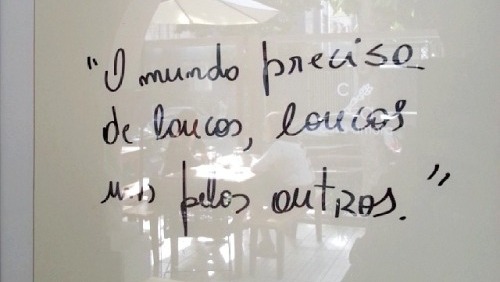 "O mundo precisa
de loucos, loucos
uns pelos outros."